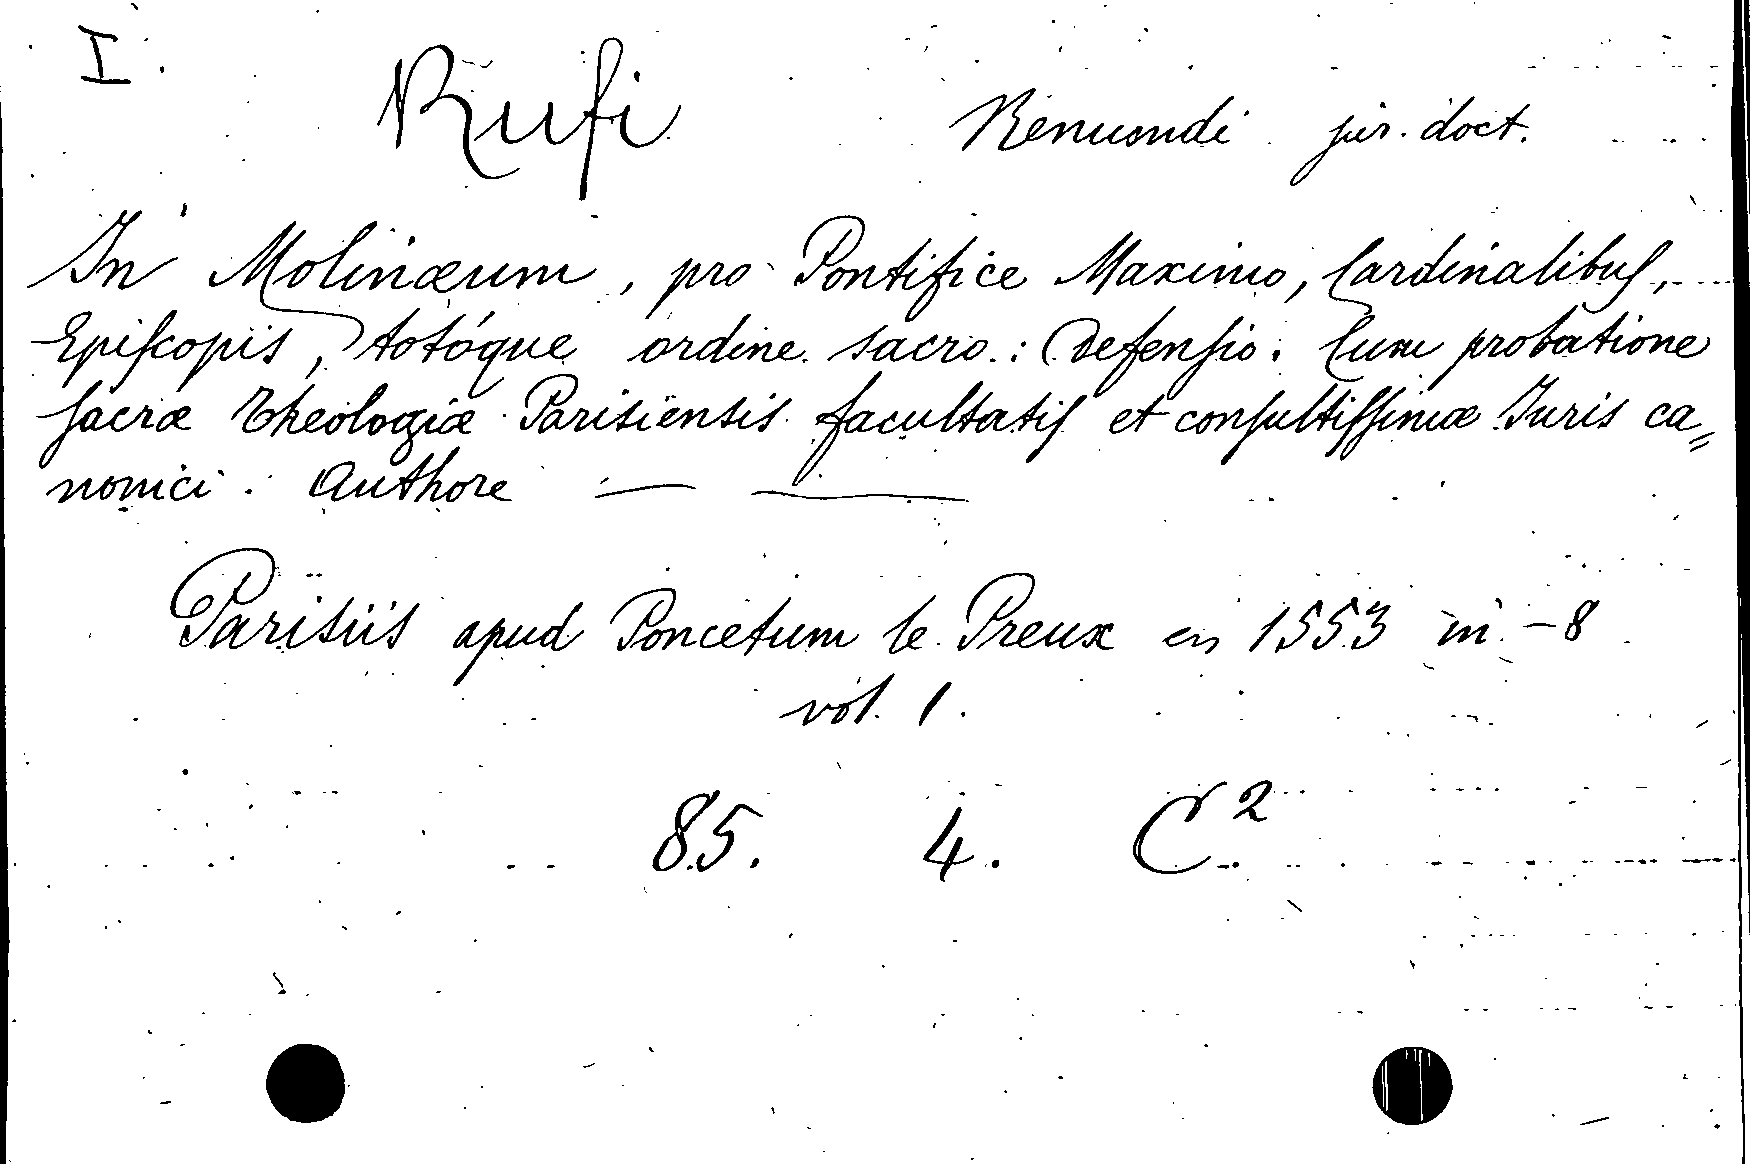 I.
Rufi Remondi jur. doct.
In Molinæum, pro Pontifice Maximo, Cardinalibuſ,
Epiſcopis, totóque ordine sacro : Defenſio. Cum probatione
ſacræ Theologiæ Parisiensis facultatiſ et conſultiſſimæ Juris ca„
nonici. Authore — —
Parisiis apud Poncetum le Preux en 1553 in -8
vol. 1.
85. 4. C².